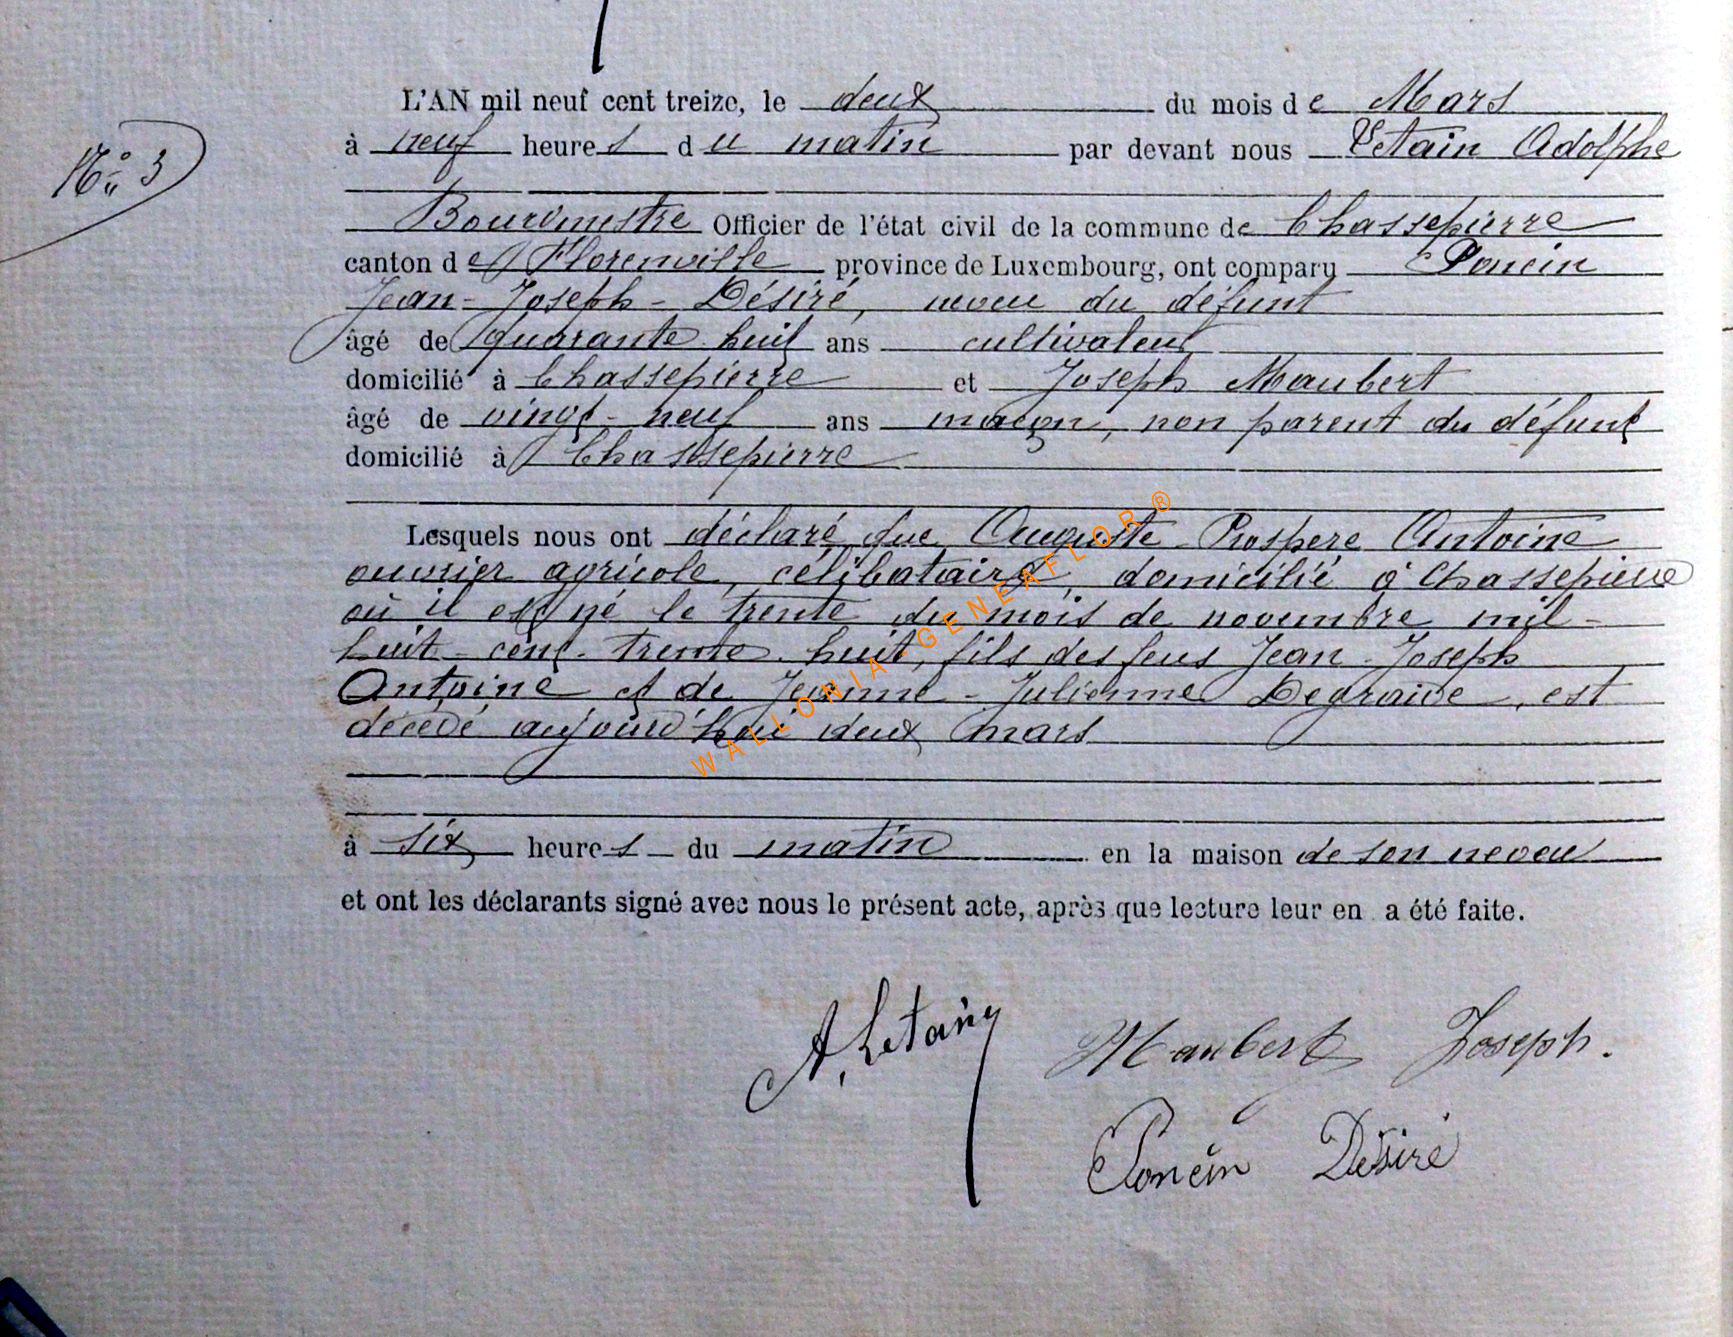 L'AN mil neuf cent treize, le deux du mois de Mars
N° 3
à neuf heures du matin par devant nous Letain Adolphe
Bourgmestre Officier de l'état civil de la commune de Chassepierre
canton de Florenville province de Luxembourg, ont comparu Poncin
Jean-Joseph-Désiré, neveu du défunt
âgé de quarante huit ans cultivateur
domicilié à Chassepierre et Joseph Maubert
âgé de vingt-neuf ans maçon, non parent du défunt
domicilié à Chassepierre
Lesquels nous ont déclaré que Auguste Prospere Antoine
ouvrier agricole, célibataire, domicilié à Chassepierre
où il est né le trente du mois de novembre mil-
huit-cent-trente-huit, fils des feus Jean-Joseph
Antoine et de Jeanne-Julienne Degraive, est
décédé aujourd'hui deux mars
WALLONIA-GENEAFLOR®
à six heures du matin en la maison de son neveu
et ont les déclarants signé avec nous le présent acte, après que lecture leur en a été faite.
A, Letain
Maubert Joseph.
Poncin Désiré